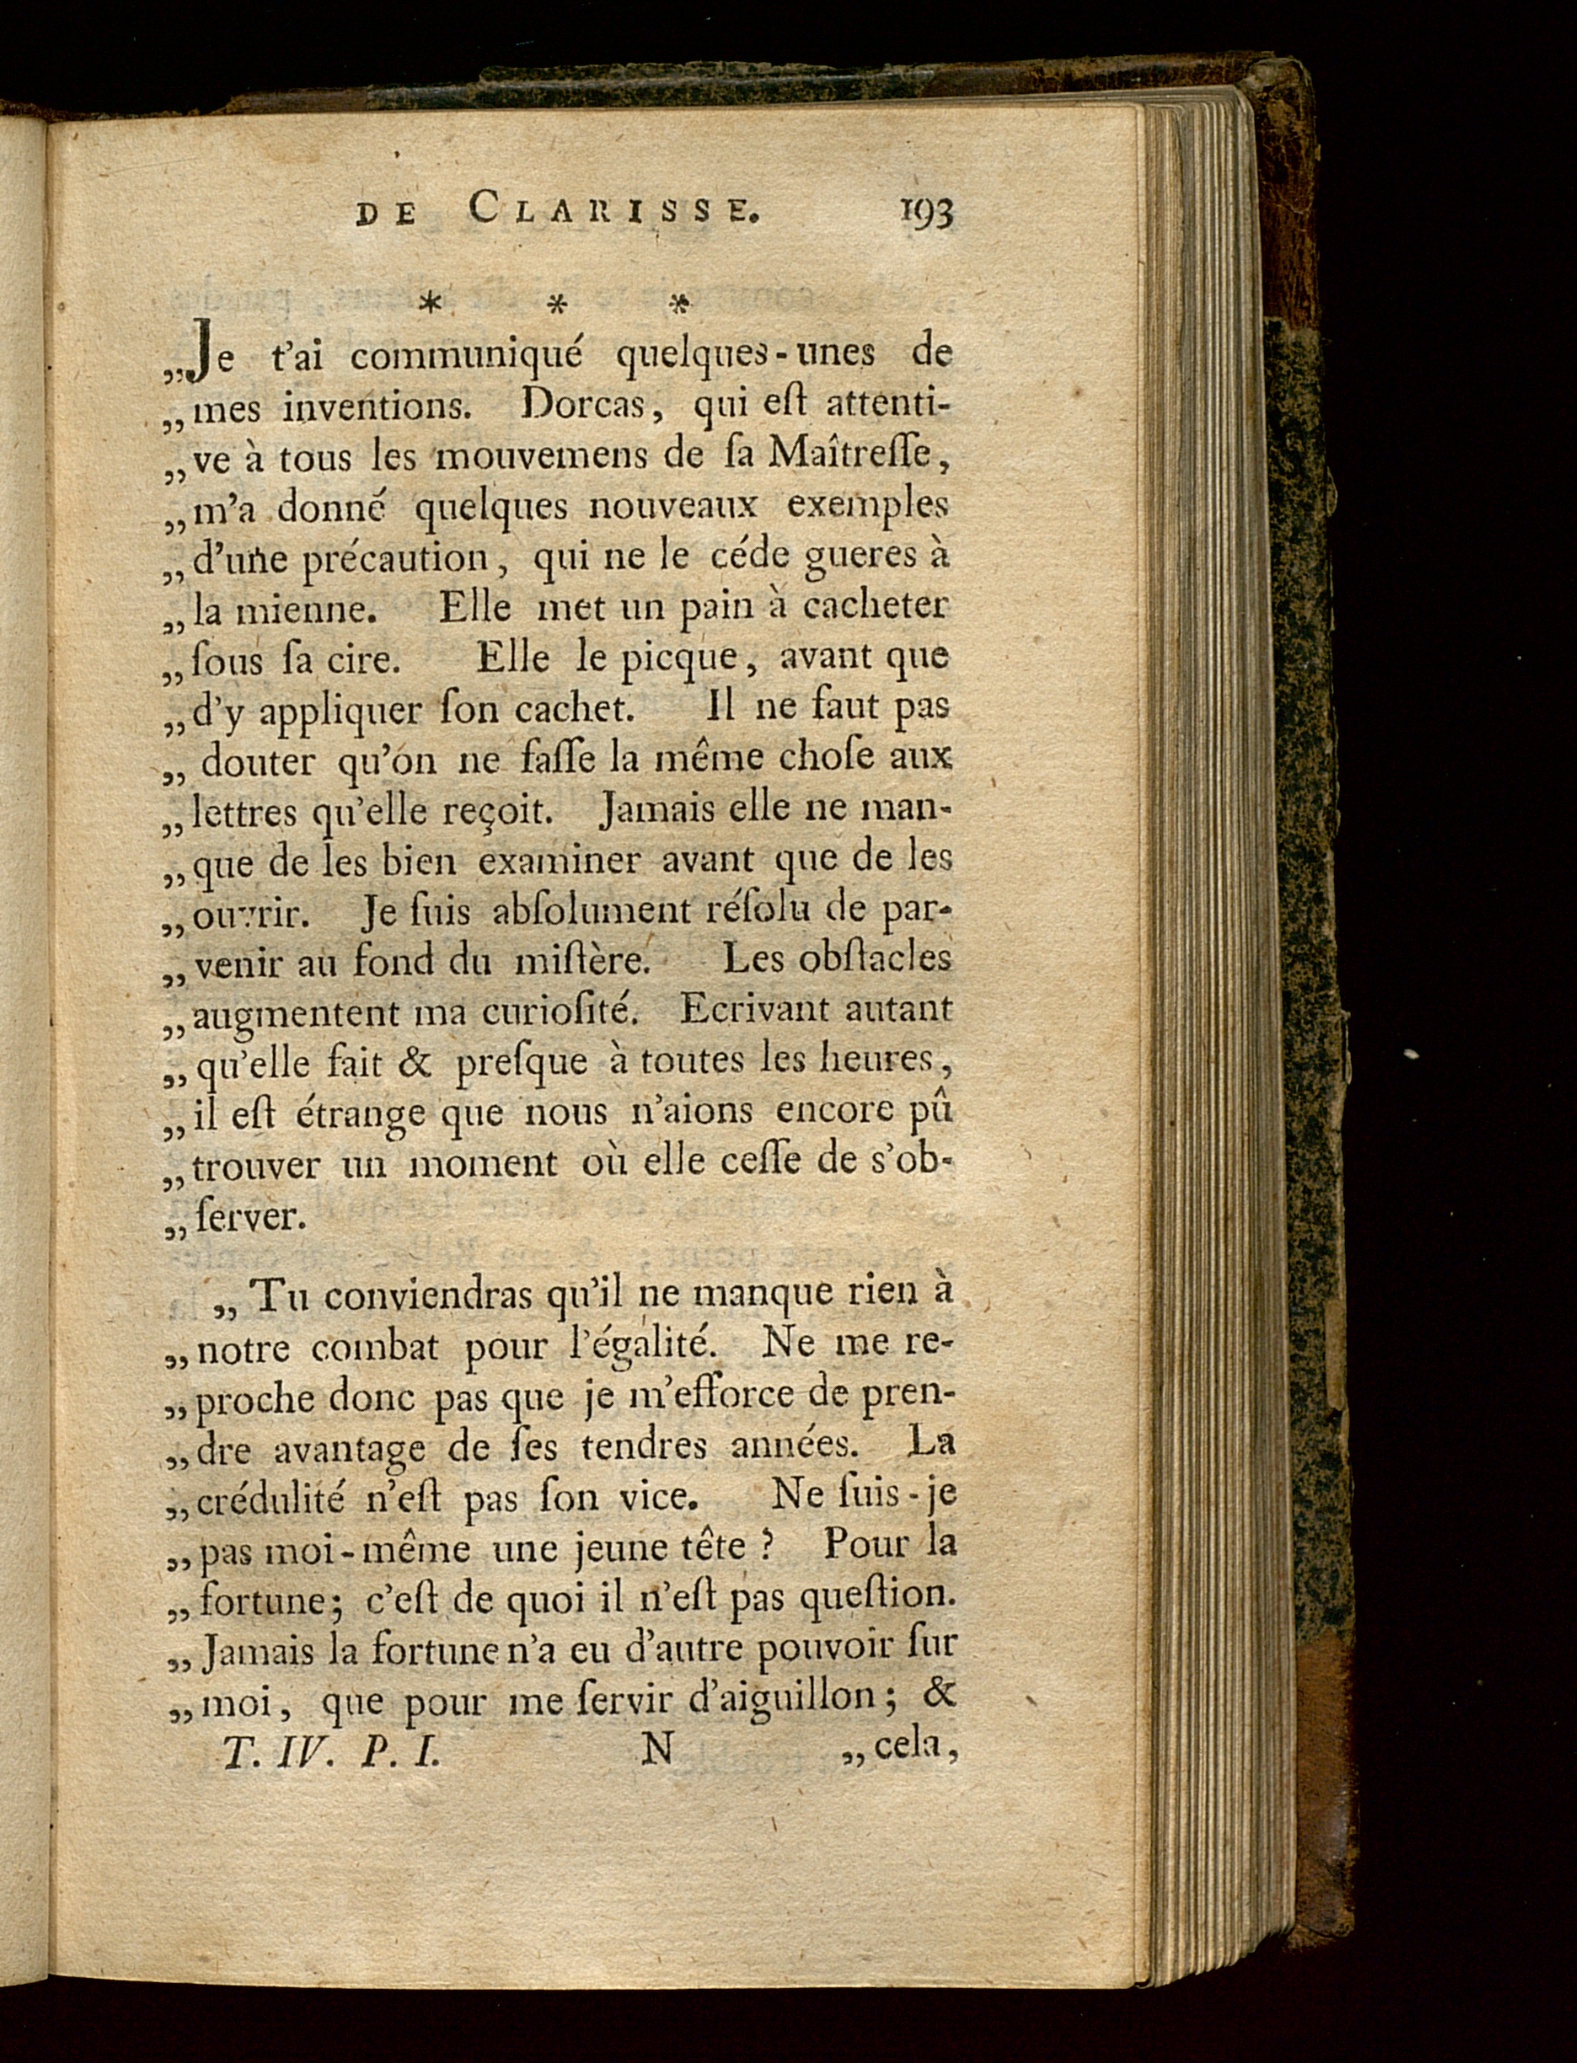 DE CLARISSE. 193
* * *
„Je t'ai communiqué quelques-unes de
„mes inventions. Dorcas, qui eſt attenti-
„ve à tous les mouvemens de ſa Maîtreſſe,
„m'a donné quelques nouveaux exemples
„d'une précaution, qui ne le céde gueres à
„la mienne. Elle met un pain à cacheter
„ſous ſa cire. Elle le picque, avant que
„d'y appliquer ſon cachet. Il ne faut pas
„douter qu'on ne faſſe la même choſe aux
„lettres qu'elle reçoit. Jamais elle ne man-
„que de les bien examiner avant que de les
„ouvrir. Je ſuis abſolument réſolu de par-
„venir au fond du miſtère. Les obſtacles
„augmentent ma curioſité. Ecrivant autant
„qu'elle fait & preſque à toutes les heures,
„il eſt étrange que nous n'aions encore pû
„trouver un moment où elle ceſſe de s'ob-
„ſerver.
„Tu conviendras qu'il ne manque rien à
„notre combat pour l'égalité. Ne me re-
„proche donc pas que je m'efforce de pren-
„dre avantage de ſes tendres années. La
„crédulité n'eſt pas ſon vice. Ne ſuis-je
„pas moi-même une jeune tête? Pour la
„fortune; c'eſt de quoi il n'eſt pas queſtion.
„Jamais la fortune n'a eu d'autre pouvoir ſur
„moi, que pour me ſervir d'aiguillon; &
T. IV. P. I. N „cela,